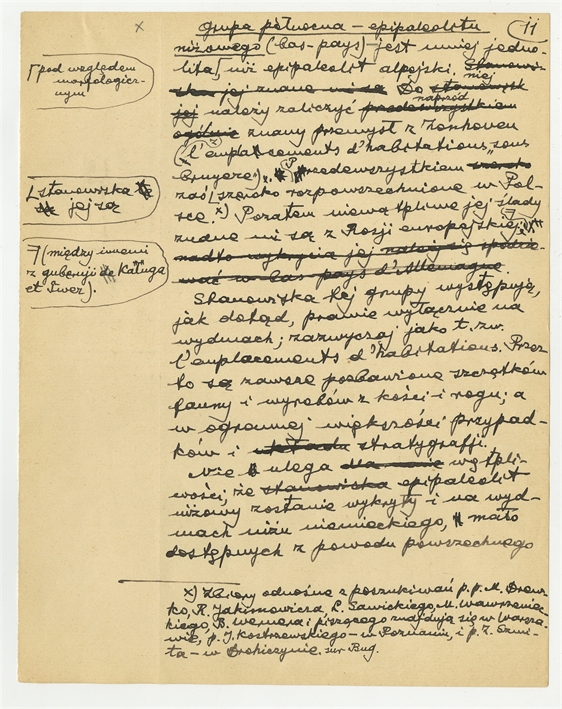 11
grupa północna – epipaleolitu
niżowego (bas-pays) – jest mniej jedno-
lita niż epipaleolit alpejski. Stanowi-
ska jej znane mi są Do niej stanowisk
jej należy zaliczyć przedewszystkiem naprzód
ogólnie znany przemysł z Zonhoven
(l'emplacements d'habitations „sous
bruyère"). Przedewszystkiem
zaś szeroko rozpowszechnione w Pol-
sce. x) Pozatem niewątpliwe jej ślady
znane mi są z Rosji europejskiej
nadto wykrycia jej należy się spodzie-
wać w bas pays d'Allemagne.
Stanowiska tej grupy występują,
jak dotąd, prawie wyłącznie na
wydmach; zazwyczaj jako t. zw.
l'emplacements d'habitations. Przez
to są zawsze pozbawione szczątków
fauny i wyrobów z kości i rogu; a
w ogromnej większości przypad-
ków i układu stratygrafji.
Nie ulega dla mnie wątpli-
wości, że stanowiska epipaleolit
niżowy zostanie wykryty i na wyd-
mach niżu niemieckiego, mało
dostępnych z powodu powszechnego
x
pod względem
morfologicz-
nym
stanowiska
jej są
7 (między innemi
z gubernji Kaługa
et Twer).
x) Zbiory odnośne z poszukiwań p.p. M. Drew-
ko, R. Jakimowicza, L. Sawickiego, M. Wawrzeniec-
kiego, B. Wernera i piszącego znajdują się w Warsza-
wie, p. J. Kostrzewskiego – w Poznaniu, i p. Z. Szmi-
ta – w Drohiczynie sur Bug.